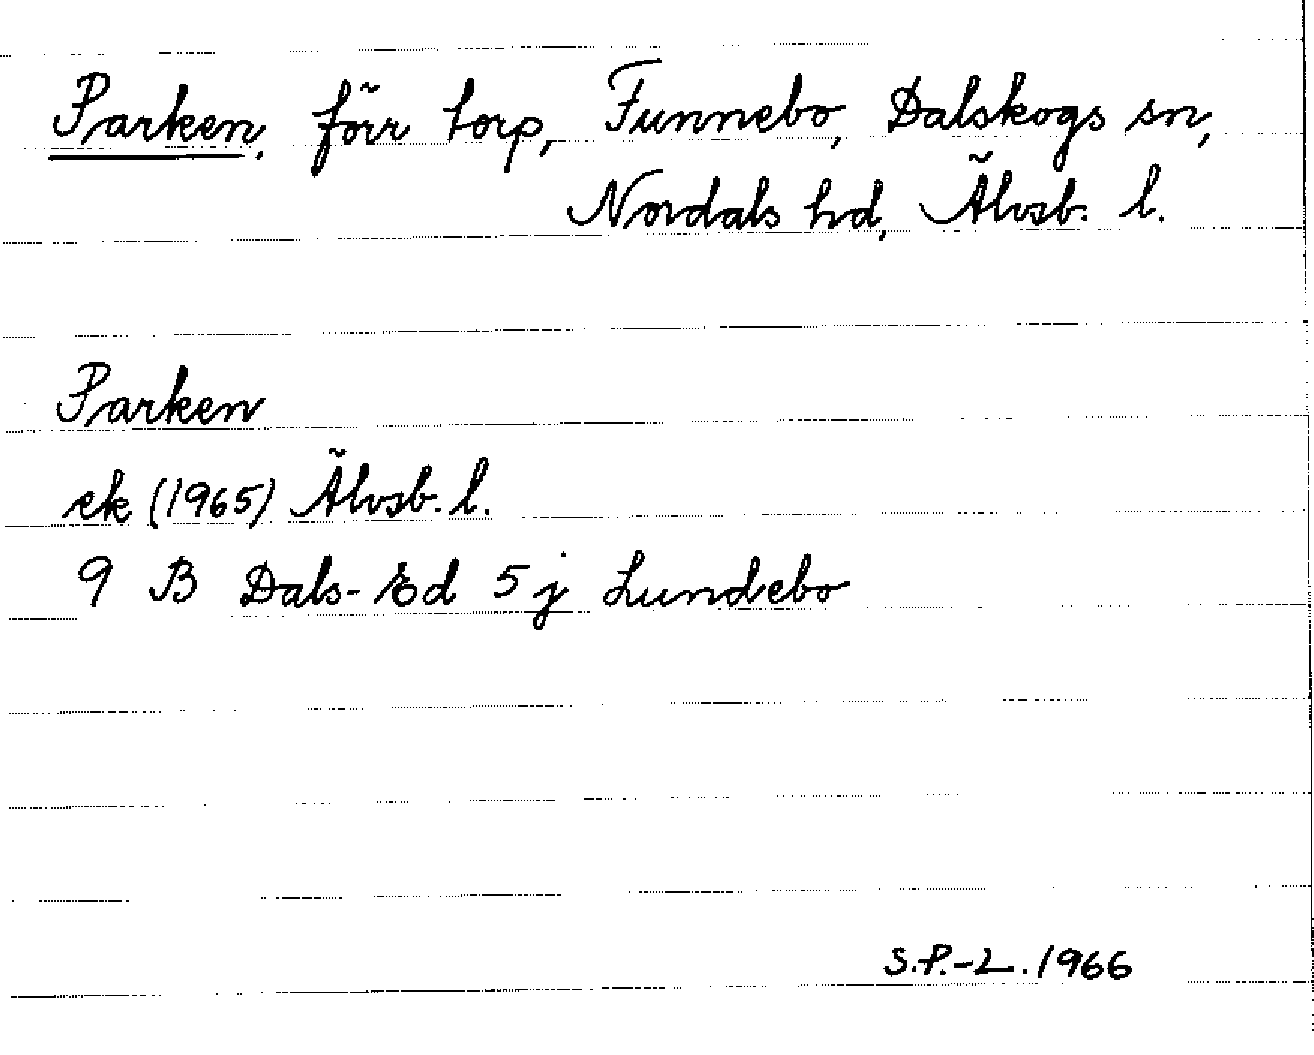 Parken, förr torp, Funnebo, Dalskogs sn,
Nordals hd, Älvsb. l.
Parken
ek (1965) Älvsb. l.
9 B Dals-Ed 5 j Lundebo
S.P.-L. 1966